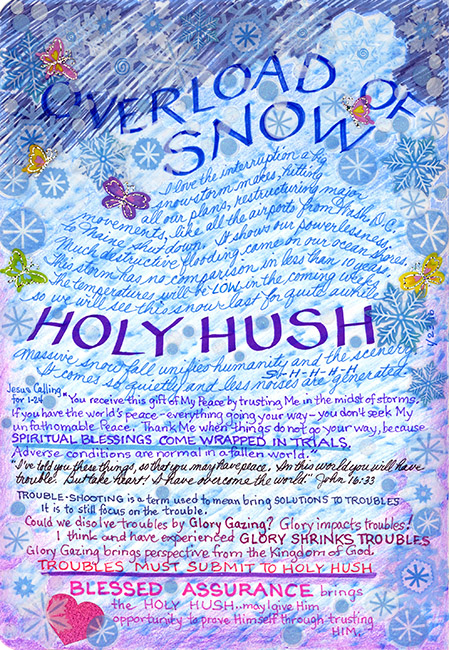 OVERLOAD OF
SNOW
I love the interruption a big
snowstorm makes, hitting
all our plans, restructuring major
movements, like all the airports from Wash D.C.
to Maine shut down. It shows our powerlessness,
Much destructive flooding came on our ocean shores.
This storm has no comparison in less than 10 years.
The temperatures will be LOW in the coming week
so we will see this snow last for quite awhile.
HOLY HUSH
massive snow fall unifies humanity and the scenery.
It comes so quietly and less noises are generated.
SH-H-H-H-H
Jesus Calling
for 1-24
"You receive this gift of My Peace by trusting Me in the midst of storms.
If you have the world's peace - everything going your way - you don't seek My
unfathomable Peace. Thank Me when things do not go your way, because
SPIRITUAL BLESSINGS COME WRAPPED IN TRIALS.
Adverse conditions are normal in a fallen world."
"I've told you these things, so that you may have peace. In this world you will have
trouble. But take heart! I have overcome the world." John 16:33
TROUBLE-SHOOTING is a term used to mean bring SOLUTIONS TO TROUBLES.
It is to still focus on the trouble.
Could we disolve troubles by Glory Gazing? Glory impacts troubles!
I think and have experienced GLORY SHRINKS TROUBLES
Glory Gazing brings perspective from the Kingdom of God.
TROUBLES MUST SUBMIT TO HOLY HUSH
BLESSED ASSURANCE brings
the HOLY HUSH..may I give Him
opportunity to prove Himself through trusting
HIM.